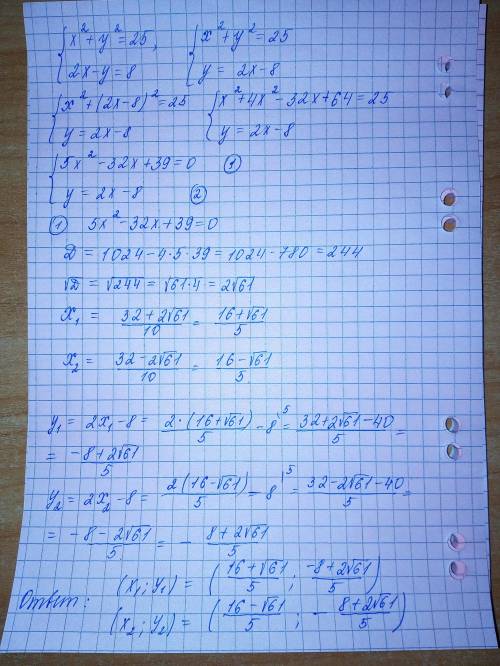 { x² + y² = 25,   { x² + y² = 25
{ 2x - y = 8   { y = 2x - 8
{ x² + (2x - 8)² = 25   { x² + 4x² - 32x + 64 = 25
{ y = 2x - 8   { y = 2x - 8
{ 5x² - 32x + 39 = 0   ①
{ y = 2x - 8   ②
① 5x² - 32x + 39 = 0
D = 1024 - 4·5·39 = 1024 - 780 = 244
√D = √244 = √61·4 = 2√61
x₁ = (32 + 2√61)/10 = (16 + √61)/5
x₂ = (32 - 2√61)/10 = (16 - √61)/5
y₁ = 2x₁ - 8 = 2·(16 + √61)/5 - 8^{\5} = (32 + 2√61 - 40)/5 =
= (-8 + 2√61)/5
y₂ = 2x₂ - 8 = 2(16 - √61)/5 - 8^{\5} = (32 - 2√61 - 40)/5 =
= (-8 - 2√61)/5 = - (8 + 2√61)/5
Ответ: (x₁; y₁) = ((16 + √61)/5; (-8 + 2√61)/5)
(x₂; y₂) = ((16 - √61)/5; - (8 + 2√61)/5)